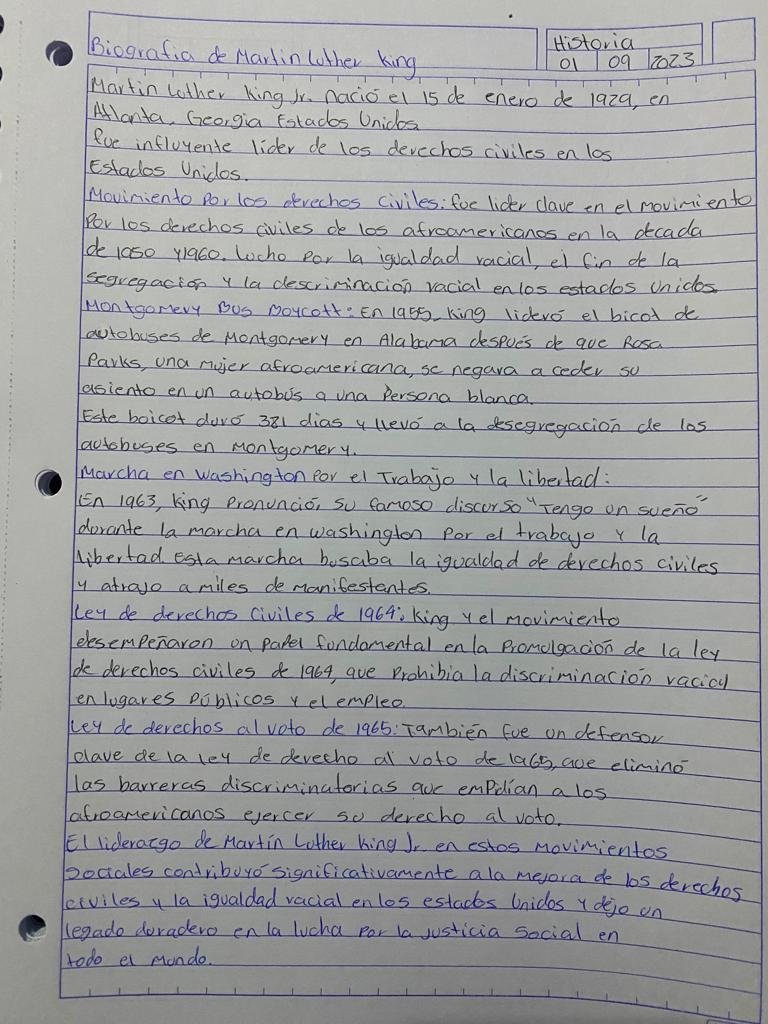 Biografia de Martin Luther King
Historia
01 09 2023
Martin Luther King Jr. nació el 15 de enero de 1929, en
Atlanta, Georgia Estados Unidos
fue influyente líder de los derechos civiles en los
Estados Unidos.
Movimiento Por los derechos civiles: fue lider clave en el movimiento
Por los derechos civiles de los afroamericanos en la decada
de 1950 y 1960. Lucho por la igualdad racial, el fin de la
segregación y la descriminación racial en los estados unidos
Montgomery Bus Boycott: En 1955, King lideró el bicot de
autobuses de Montgomery en Alabama después de que Rosa
Parks, una mujer afroamericana, se negara a ceder su
asiento en un autobús a una Persona blanca.
Este boicot duró 381 dias y llevó a la desegregación de los
autobuses en Montgomery.
Marcha en Washington Por el Trabajo y la libertad:
En 1963, King Pronunció, su famoso discurso "Tengo un sueño"
durante la marcha en Washington Por el trabajo y la
libertad. Esta marcha buscaba la igualdad de derechos civiles
y atrajo a miles de manifestantes.
Ley de derechos civiles de 1964: King y el movimiento
desempeñaron un papel fundamental en la Promulgación de la ley
de derechos civiles de 1964, que Prohibia la discriminación racial
en lugares Públicos y el empleo.
Ley de derechos al voto de 1965: También fue un defensor
clave de la ley de derecho al voto de 1965, que eliminó
las barreras discriminatorias que empidían a los
afroamericanos ejercer su derecho al voto.
El liderazgo de Martín Luther King Jr. en estos movimientos
Sociales contribuyó significativamente a la mejora de los derechos
civiles y la igualdad racial en los estados Unidos y dejo un
legado duradero en la lucha por la Justicia Social en
todo el mundo.